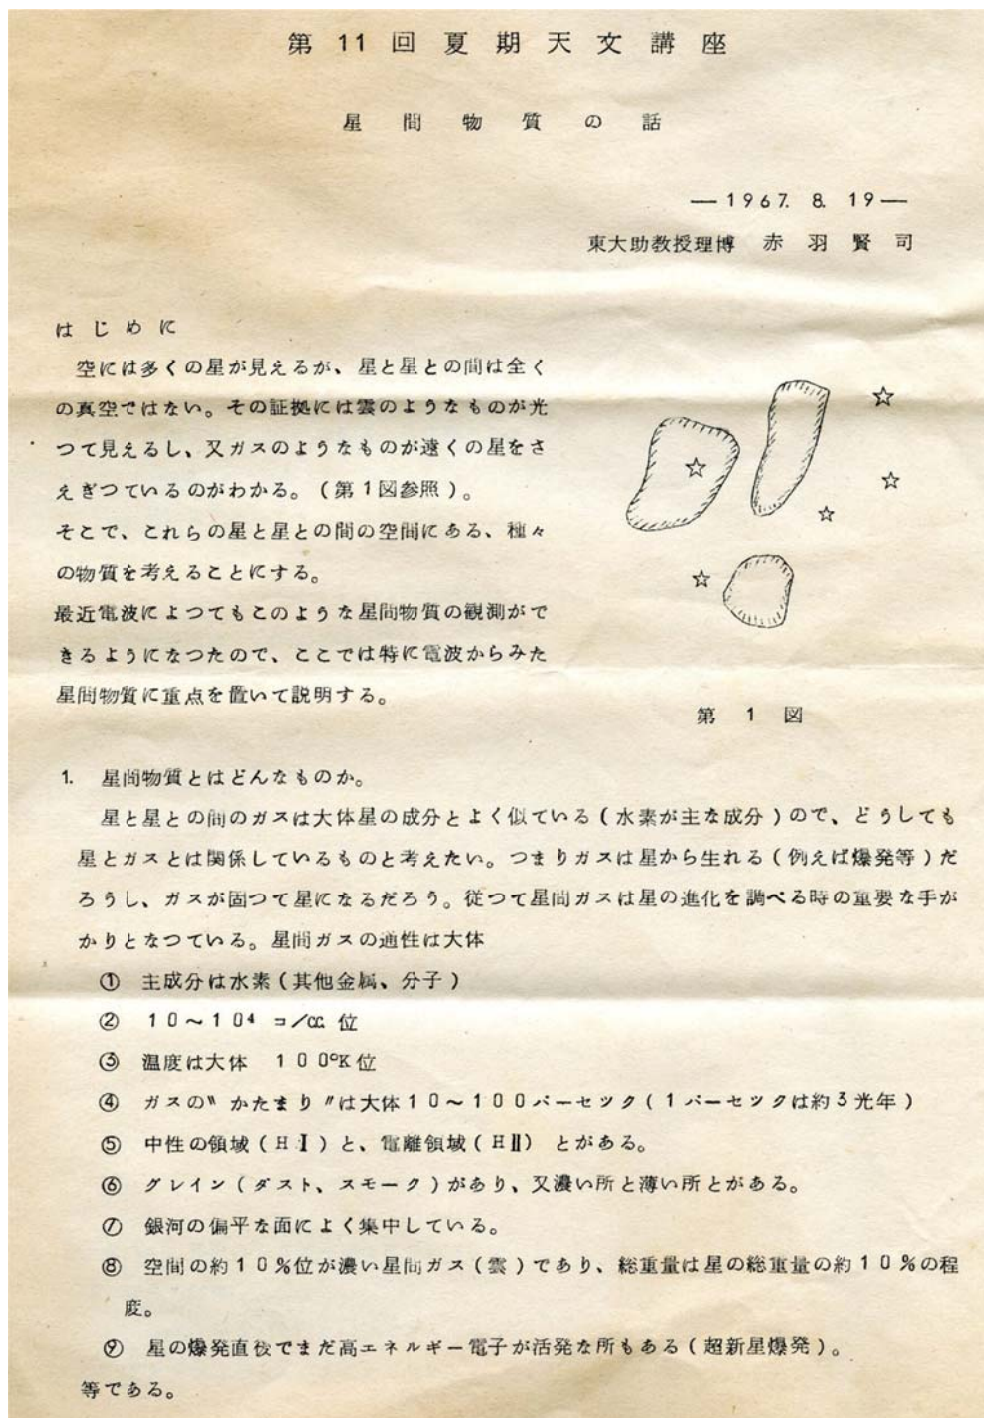 第11回夏期天文講座
星間物質の話
—1967. 8. 19—
東大助教授理博 赤羽賢司
はじめに
空には多くの星が見えるが、星と星との間は全く
の真空ではない。その証拠には雲のようなものが光
つて見えるし、又ガスのようなものが遠くの星をさ
えぎつているのがわかる。(第1図参照)。
そこで、これらの星と星との間の空間にある、種々
の物質を考えることにする。
最近電波によつてもこのような星間物質の観測がで
きるようになつたので、ここでは特に電波からみた
星間物質に重点を置いて説明する。
第1図
1. 星間物質とはどんなものか。
星と星との間のガスは大体星の成分とよく似ている(水素が主な成分)ので、どうしても
星とガスとは関係しているものと考えたい。つまりガスは星から生れる(例えば爆発等)だ
ろうし、ガスが固つて星になるだろう。従つて星間ガスは星の進化を調べる時の重要な手が
かりとなつている。星間ガスの通性は大体
① 主成分は水素(其他金属、分子)
② 10～10⁴ コ/cc 位
③ 温度は大体 100°K位
④ ガスの〝かたまり〟は大体10～100パーセツク(1パーセツクは約3光年)
⑤ 中性の領域(HⅠ)と、電離領域(HⅡ)とがある。
⑥ グレイン(ダスト、スモーク)があり、又濃い所と薄い所とがある。
⑦ 銀河の偏平な面によく集中している。
⑧ 空間の約10%位が濃い星間ガス(雲)であり、総重量は星の総重量の約10%の程
度。
⑨ 星の爆発直後でまだ高エネルギー電子が活発な所もある(超新星爆発)。
等である。